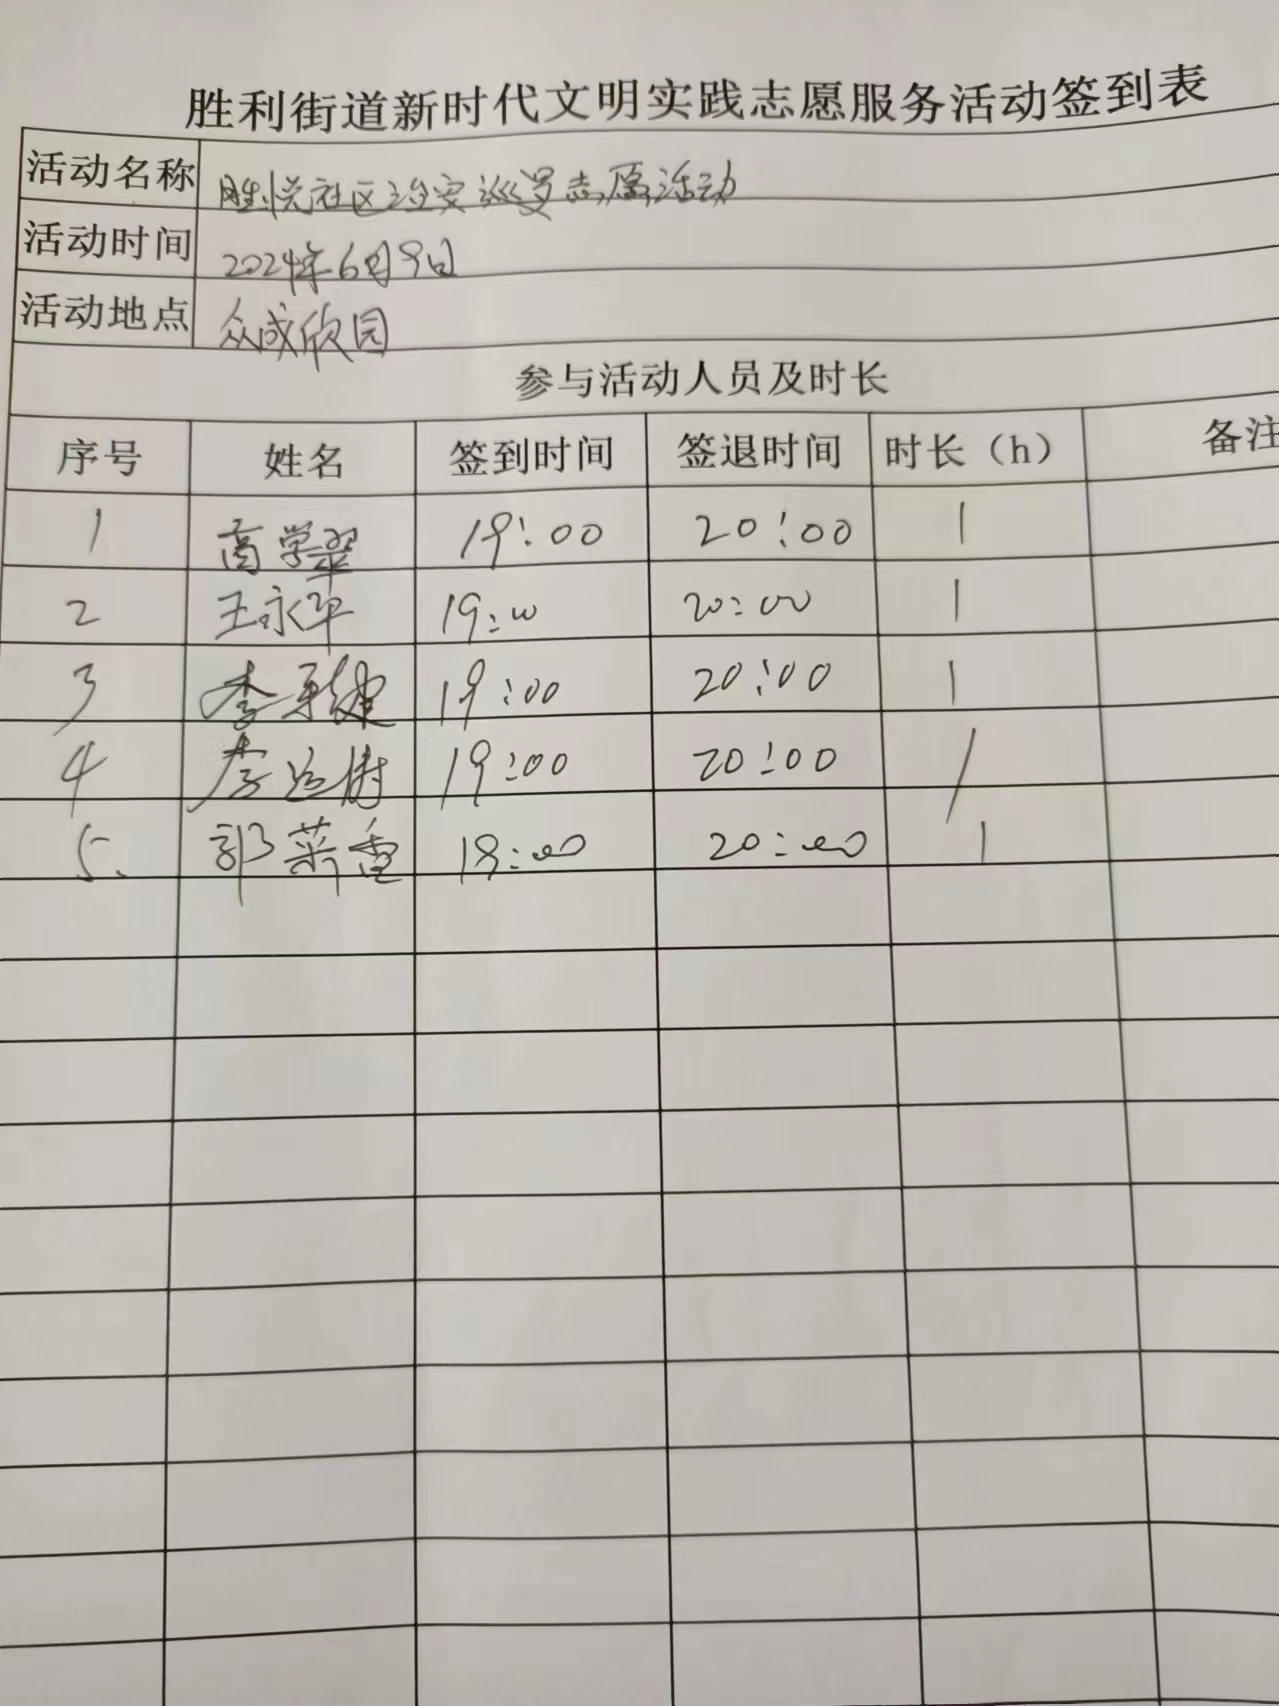 胜利街道新时代文明实践志愿服务活动签到表
活动名称 胜悦社区治安巡逻志愿活动
活动时间 2024年6月9日
活动地点 众成欣园
参与活动人员及时长
序号 姓名 签到时间 签退时间 时长（h） 备注
1 商学翠 19:00 20:00 1
2 王永平 19:00 20:00 1
3 李 19:00 20:00 1
4 李运树 19:00 20:00 1
5. 郭菜香 20:00 1